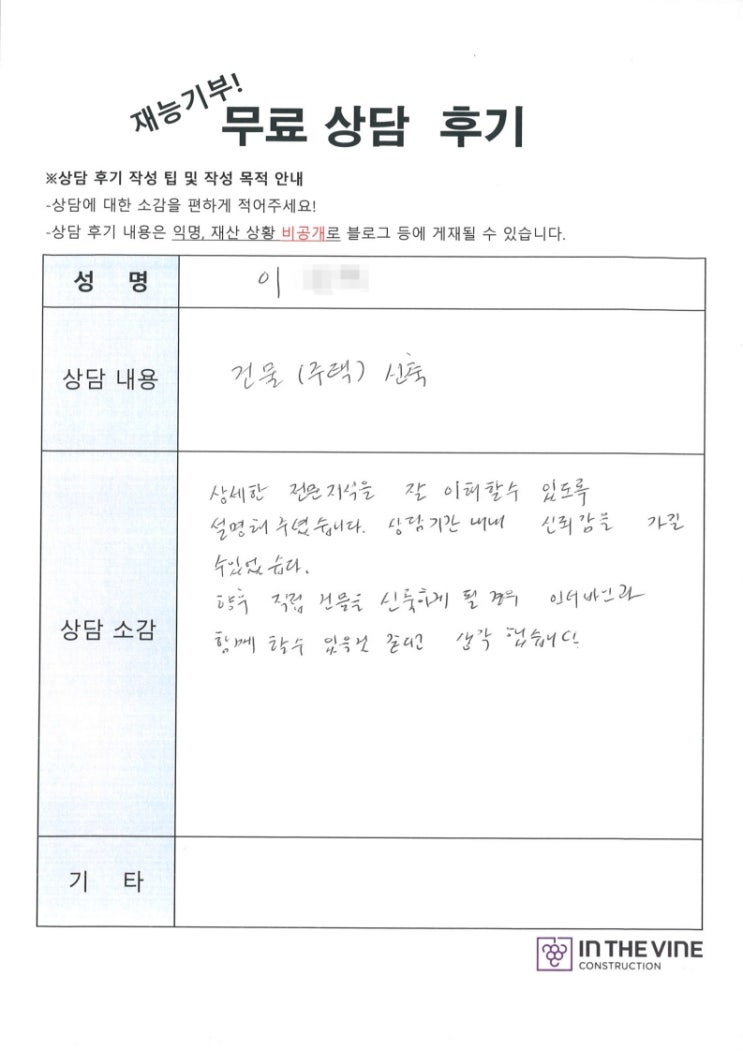 재능기부!
무료 상담 후기
※상담 후기 작성 팁 및 작성 목적 안내
-상담에 대한 소감을 편하게 적어주세요!
-상담 후기 내용은 익명, 재산 상황 비공개로 블로그 등에 게재될 수 있습니다.
성 명 이
상담 내용 건물 (주택) 신축
상담 소감
상세한 전문지식을 잘 이해할수 있도록
설명해 주셨습니다. 상담기간 내내 신뢰감을 가질
수있었습다.
향후 직접 건물을 신축하게 될 경우 인더바인과
함께 할수 있을것 같다고 생각 했습니다.
기 타
IN THE VINE
CONSTRUCTION